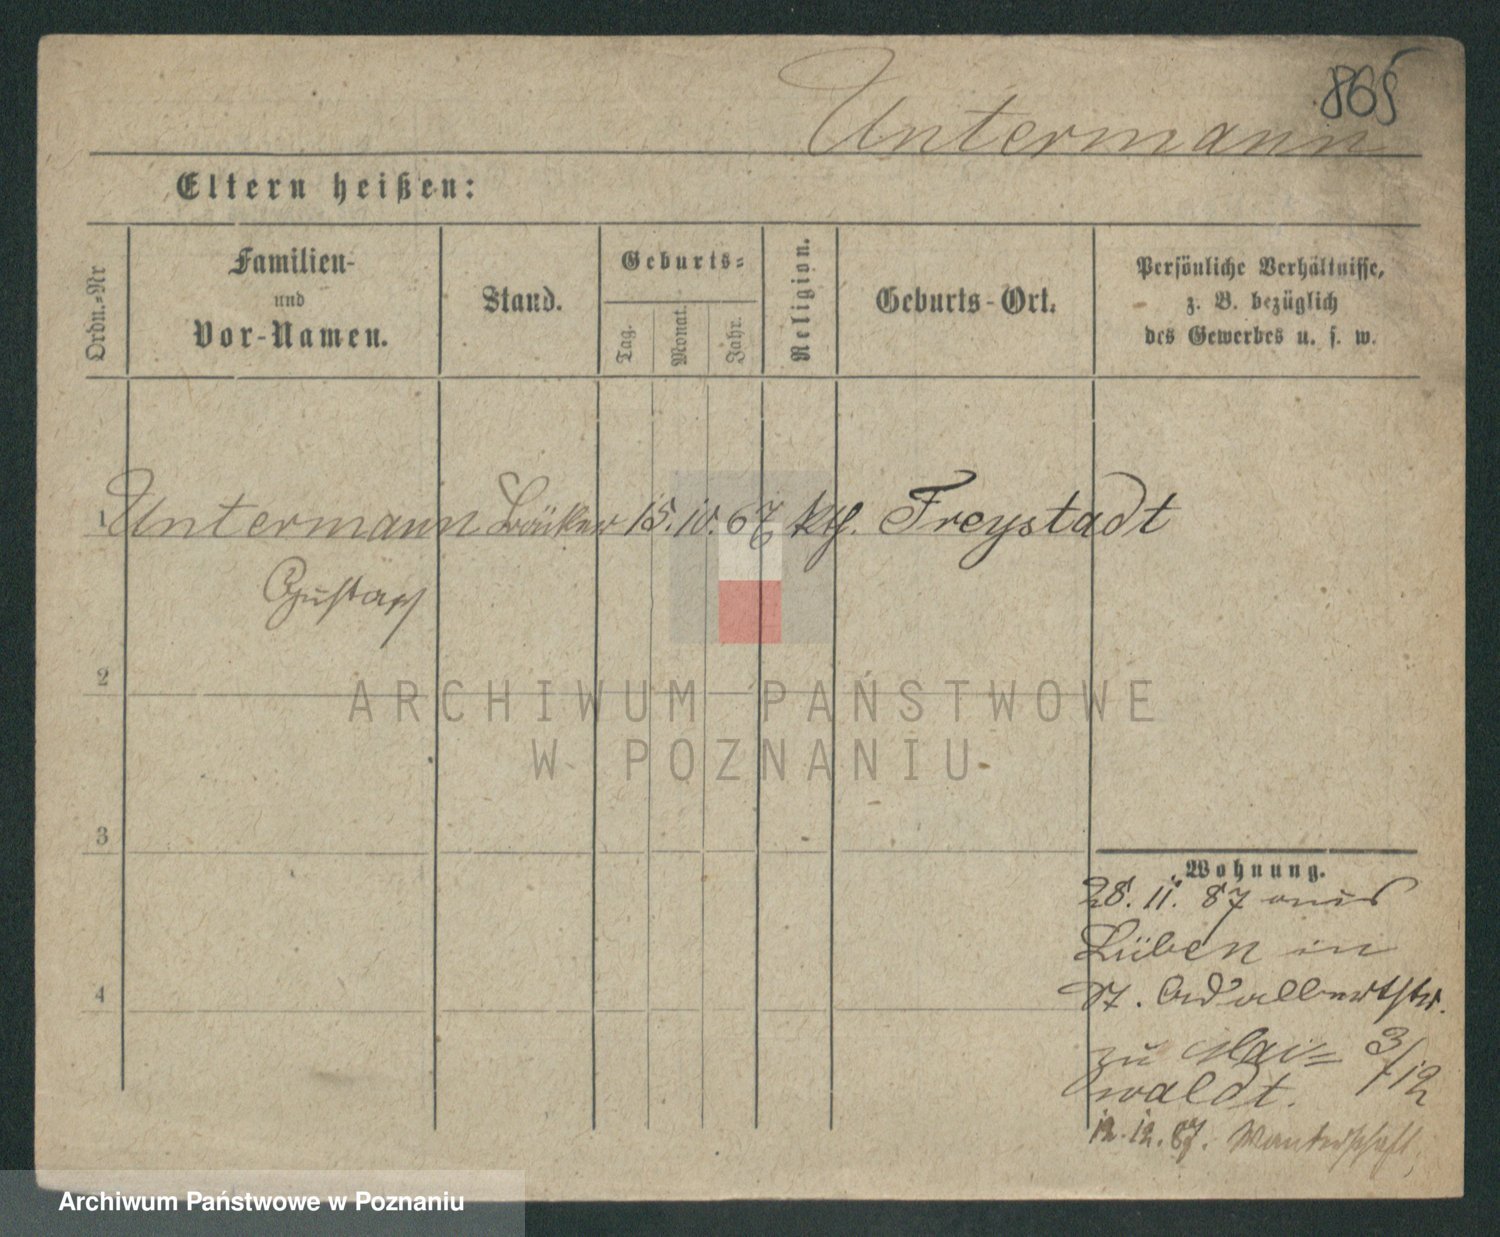 865
Untermann
Eltern heißen:
Ordn.=Nr
Familien-
und
Vor-Namen.
Stand.
Geburts=
Tag.
Monat.
Jahr.
Religion.
Geburts-Ort.
Persönliche Verhältnisse,
z. B. bezüglich
des Gewerbes u. s. w.
1 Untermann Bäcker 15. 10. 67 kth. Freystadt
Gustav
2
ARCHIWUM PAŃSTWOWE
W POZNANIU
3
4
Wohnung.
28. 11. 87 aus
Lüben in
St. Adalbertstr.
zu Mai= 3/12
waldt.
12. 12. 87. Wanderschaft,
Archiwum Państwowe w Poznaniu